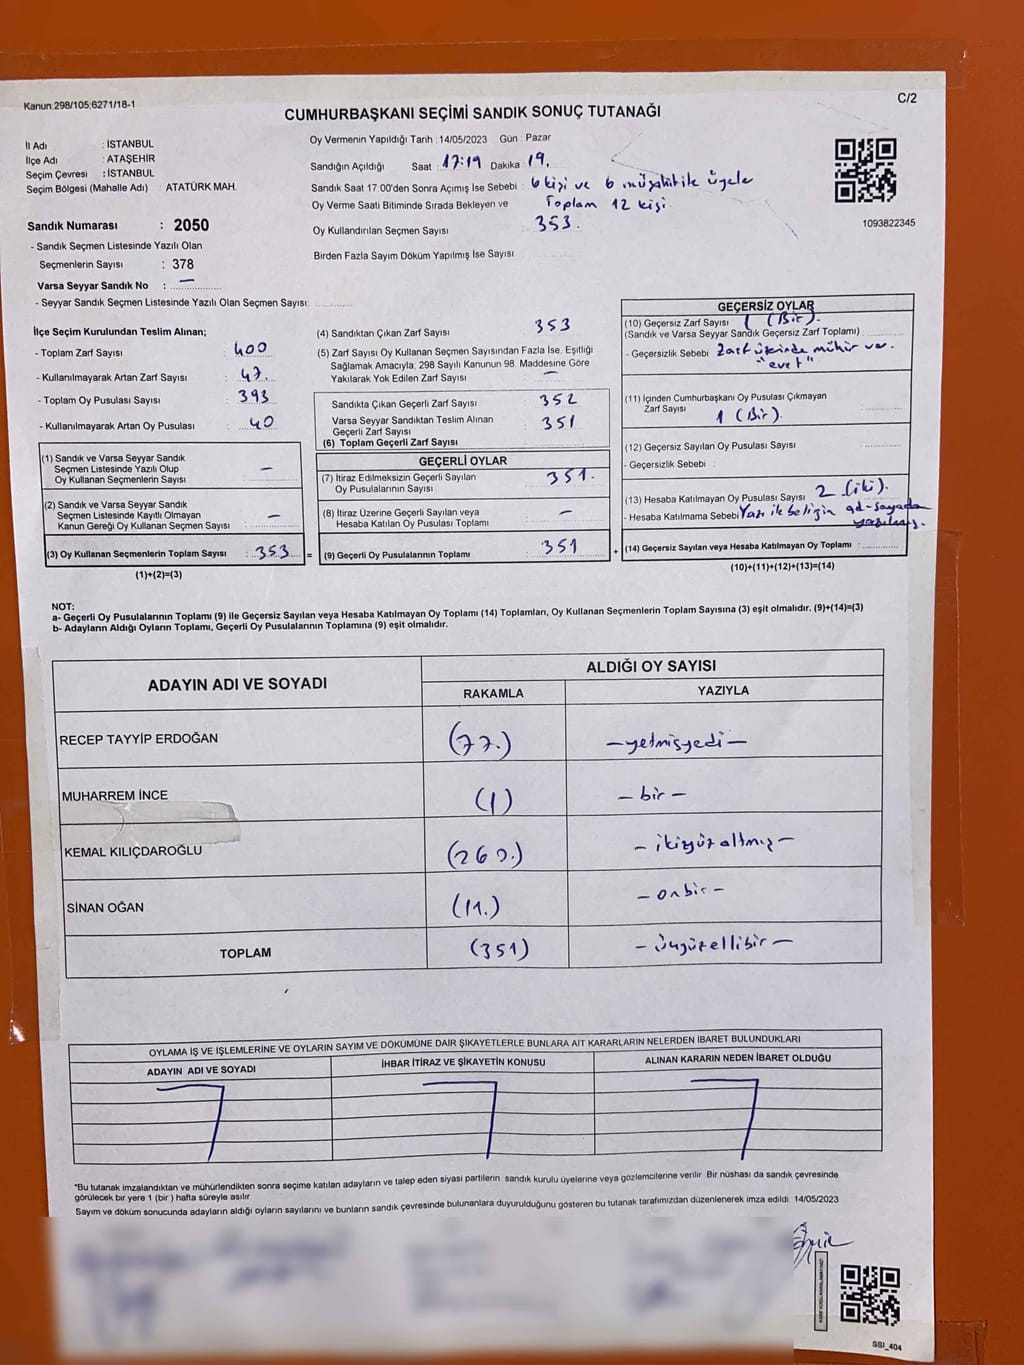 Kanun:298/105;6271/18-1
C/2
CUMHURBAŞKANI SEÇİMİ SANDIK SONUÇ TUTANAĞI
İl Adı : İSTANBUL
İlçe Adı : ATAŞEHİR
Seçim Çevresi : İSTANBUL
Seçim Bölgesi (Mahalle Adı) : ATATÜRK MAH.
Sandık Numarası : 2050
- Sandık Seçmen Listesinde Yazılı Olan
Seçmenlerin Sayısı : 378
Varsa Seyyar Sandık No : —
- Seyyar Sandık Seçmen Listesinde Yazılı Olan Seçmen Sayısı:
Oy Vermenin Yapıldığı Tarih : 14/05/2023 Gün : Pazar
Sandığın Açıldığı Saat 17:19 Dakika 19.
Sandık Saat 17.00'den Sonra Açımış İse Sebebi : 6 kişi ve 6 müşahit ile üyeler
Oy Verme Saati Bitiminde Sırada Bekleyen ve Toplam 12 kişi.
Oy Kullandırılan Seçmen Sayısı : 353.
Birden Fazla Sayım Döküm Yapılmış İse Sayısı
1093822345
İlçe Seçim Kurulundan Teslim Alınan;
- Toplam Zarf Sayısı : 400
- Kullanılmayarak Artan Zarf Sayısı : 47.
- Toplam Oy Pusulası Sayısı : 393
- Kullanılmayarak Artan Oy Pusulası : 40
(1) Sandık ve Varsa Seyyar Sandık
Seçmen Listesinde Yazılı Olup
Oy Kullanan Seçmenlerin Sayısı : —
(2) Sandık ve Varsa Seyyar Sandık
Seçmen Listesinde Kayıtlı Olmayan
Kanun Gereği Oy Kullanan Seçmen Sayısı : —
(3) Oy Kullanan Seçmenlerin Toplam Sayısı : 353 =
(1)+(2)=(3)
(4) Sandıktan Çıkan Zarf Sayısı : 353
(5) Zarf Sayısı Oy Kullanan Seçmen Sayısından Fazla İse, Eşitliği
Sağlamak Amacıyla; 298 Sayılı Kanunun 98. Maddesine Göre
Yakılarak Yok Edilen Zarf Sayısı : —
Sandıkta Çıkan Geçerli Zarf Sayısı : 352
Varsa Seyyar Sandıktan Teslim Alınan
Geçerli Zarf Sayısı : 351
(6) Toplam Geçerli Zarf Sayısı
GEÇERLİ OYLAR
(7) İtiraz Edilmeksizin Geçerli Sayılan
Oy Pusulalarının Sayısı : 351.
(8) İtiraz Üzerine Geçerli Sayılan veya
Hesaba Katılan Oy Pusulası Toplamı : —
(9) Geçerli Oy Pusulalarının Toplamı : 351 +
GEÇERSİZ OYLAR
(10) Geçersiz Zarf Sayısı 1 (Bir).
(Sandık ve Varsa Seyyar Sandık Geçersiz Zarf Toplamı)
- Geçersizlik Sebebi : Zarf üzerinde mühür var.
"evet"
(11) İçinden Cumhurbaşkanı Oy Pusulası Çıkmayan
Zarf Sayısı 1 (Bir).
(12) Geçersiz Sayılan Oy Pusulası Sayısı
- Geçersizlik Sebebi :
(13) Hesaba Katılmayan Oy Pusulası Sayısı 2 (iki).
- Hesaba Katılmama Sebebi
(14) Geçersiz Sayılan veya Hesaba Katılmayan Oy Toplamı :
(10)+(11)+(12)+(13)=(14)
NOT:
a- Geçerli Oy Pusulalarının Toplamı (9) ile Geçersiz Sayılan veya Hesaba Katılmayan Oy Toplamı (14) Toplamları, Oy Kullanan Seçmenlerin Toplam Sayısına (3) eşit olmalıdır. (9)+(14)=(3)
b- Adayların Aldığı Oyların Toplamı, Geçerli Oy Pusulalarının Toplamına (9) eşit olmalıdır.
ADAYIN ADI VE SOYADI
ALDIĞI OY SAYISI
RAKAMLA YAZIYLA
RECEP TAYYİP ERDOĞAN (77.) —yetmişyedi—
MUHARREM İNCE (1) —bir—
KEMAL KILIÇDAROĞLU (262.) —ikiyüzaltmış—
SİNAN OĞAN (11.) —onbir—
TOPLAM (351) —üçyüzellibir—
OYLAMA İŞ VE İŞLEMLERİNE VE OYLARIN SAYIM VE DÖKÜMÜNE DAİR ŞİKAYETLERLE BUNLARA AİT KARARLARIN NELERDEN İBARET BULUNDUKLARI
ADAYIN ADI VE SOYADI İHBAR İTİRAZ VE ŞİKAYETİN KONUSU ALINAN KARARIN NEDEN İBARET OLDUĞU
"Bu tutanak imzalandıktan ve mühürlendikten sonra seçime katılan adayların ve talep eden siyasi partilerin sandık kurulu üyelerine veya gözlemcilerine verilir. Bir nüshası da sandık çevresinde
görülecek bir yere 1 (bir ) hafta süreyle asılır.
Sayım ve döküm sonucunda adayların aldığı oyların sayılarını ve bunların sandık çevresinde bulunanlara duyurulduğunu gösteren bu tutanak tarafımızdan düzenlenerek imza edildi. 14/05/2023
SSI_404